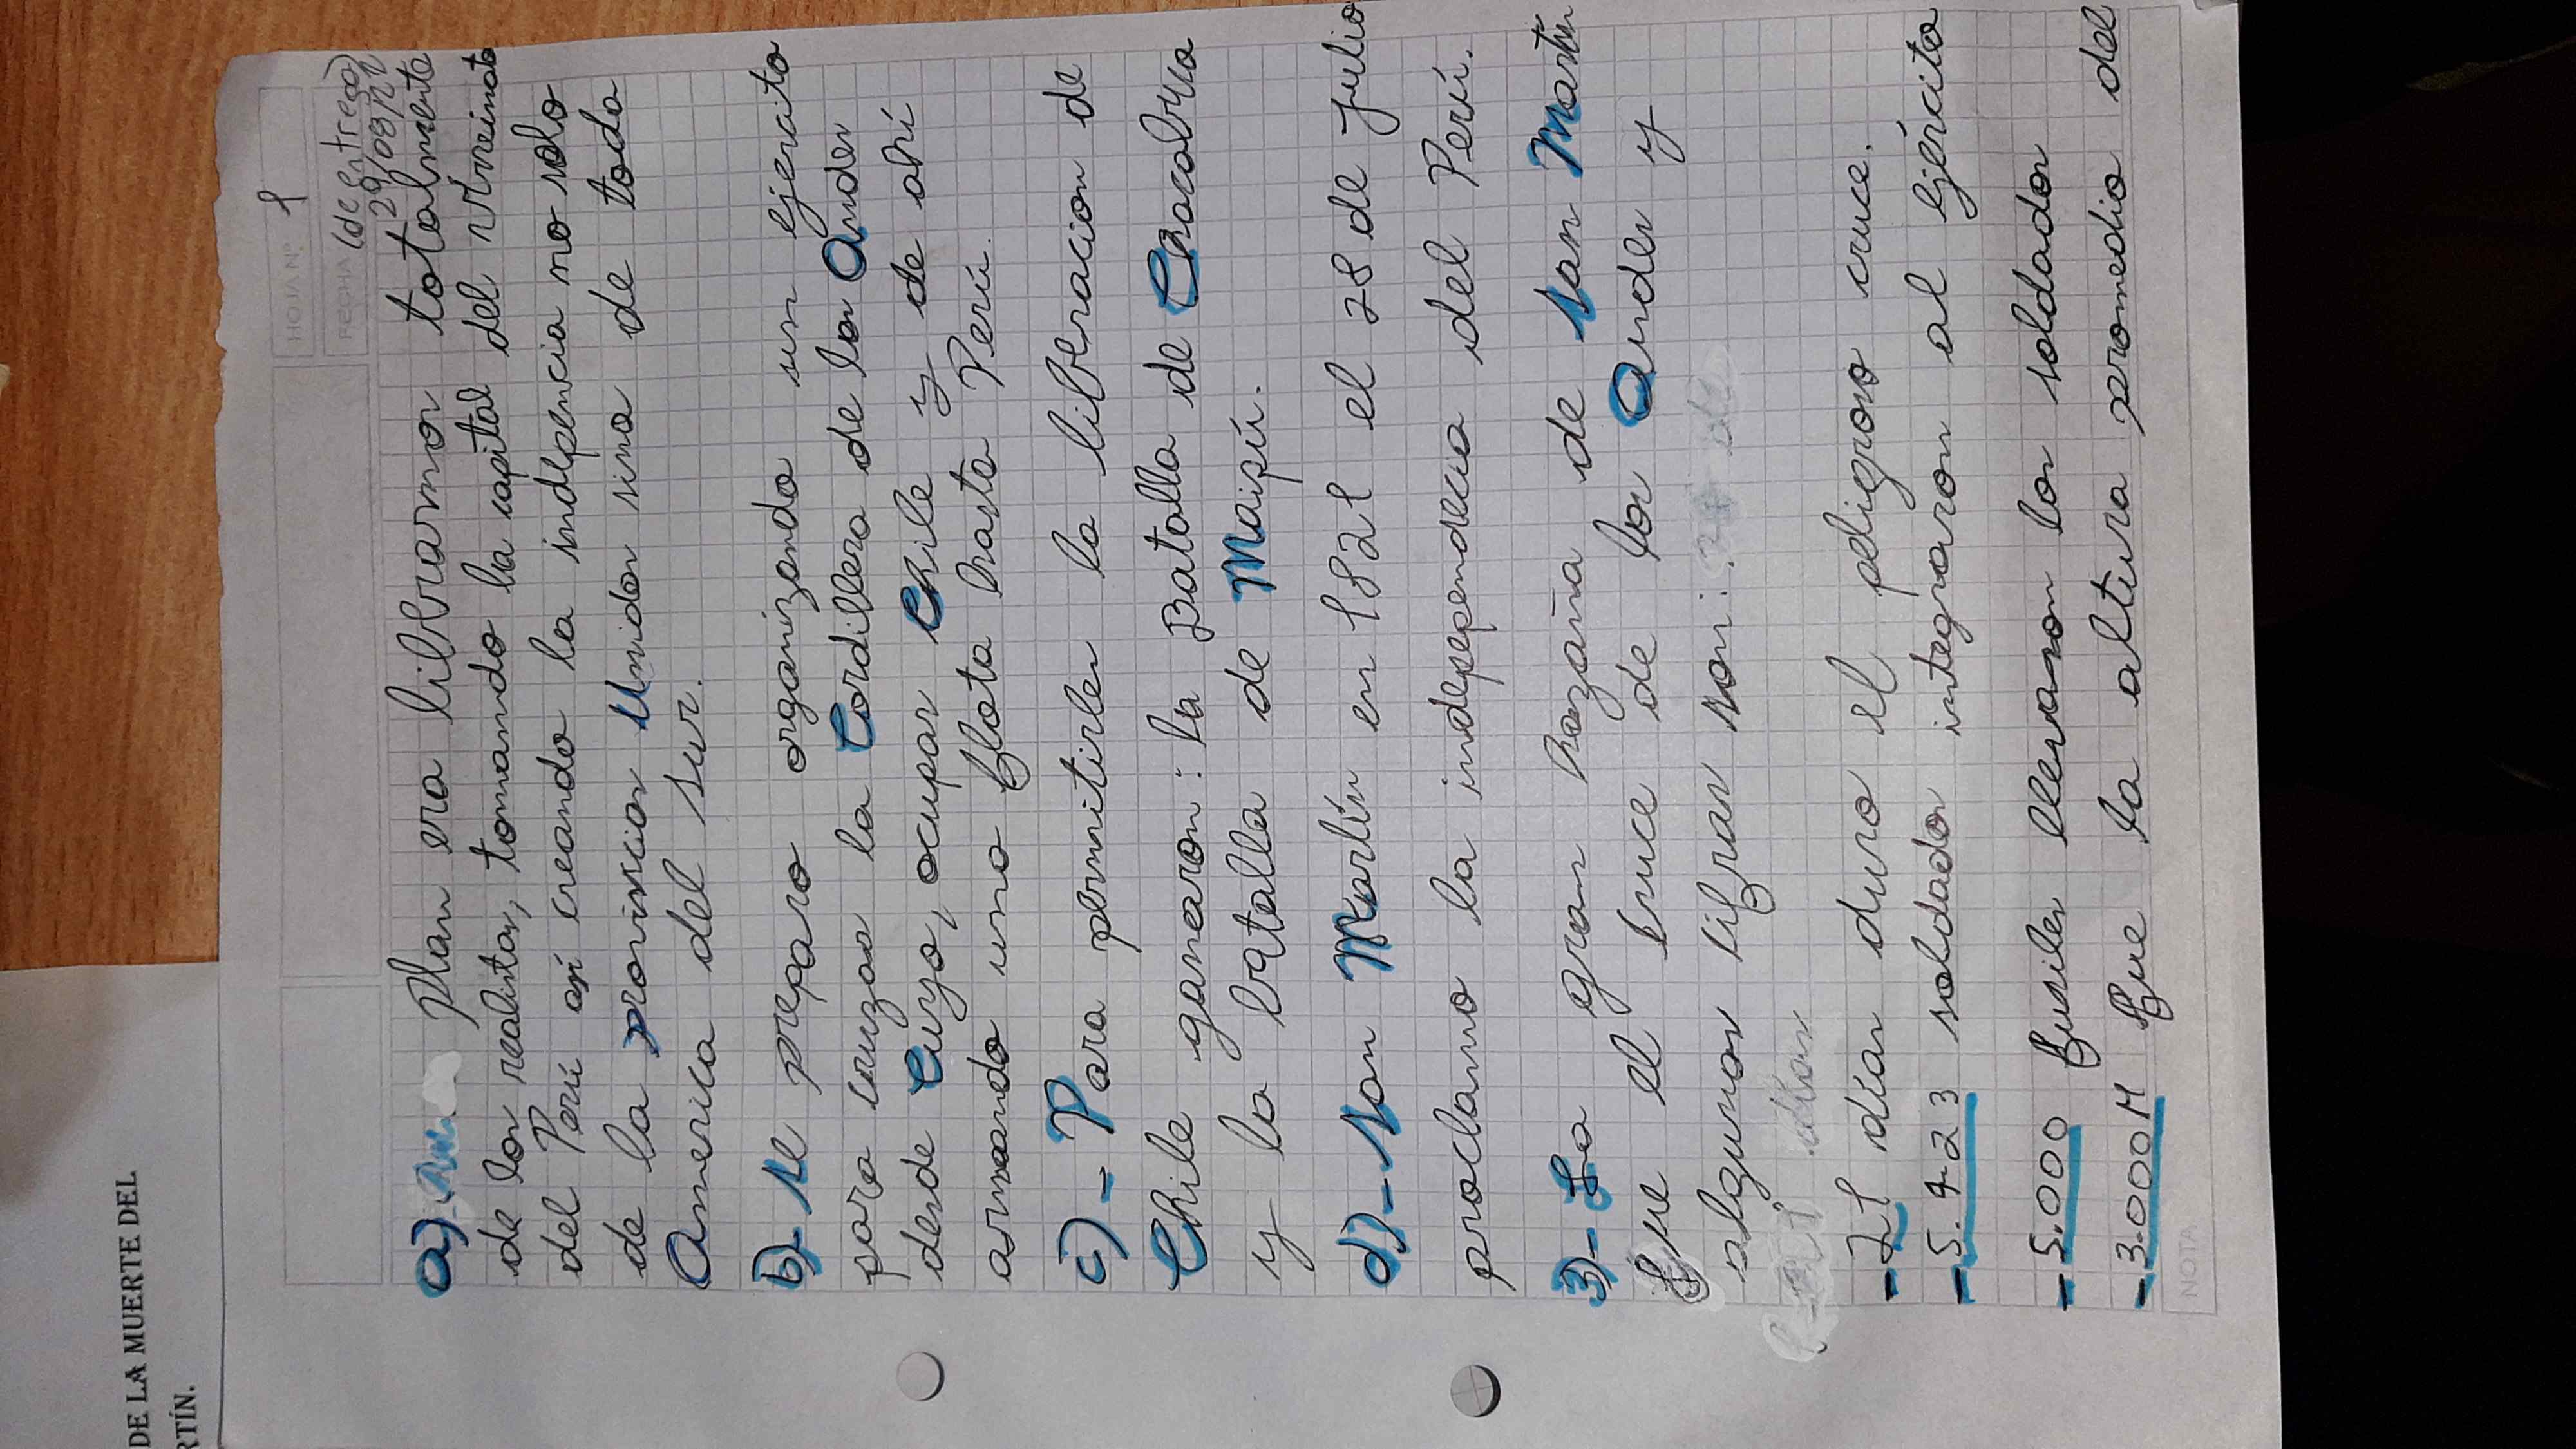 DE LA MUERTE DEL
RTÍN.
HOJA N° 1
FECHA (de entrega)
29/08/22
a)- Plan era librarnos totalmente
de los realistas, tomando la capital del virreinato
del Perú así creando la indpencia no solo
de la provincias Unidas sino de toda
America del sur.
b)- Se preparo organizando un ejercito
para cruzar la Cordillera de los Andes
desde Cuyo, ocupar Chile y de ahí
armando una flota hasta Perú.
c)- Para permitirles la liberacion de
Chile ganaron: la Batalla de Chacabuco
y la batalla de Maipú.
d)- San Martín en 1821 el 28 de julio
proclamo la indepependecia del Perú.
3)- La gran hazaña de San Martín
fue el cruce de los Andes y
algunas cifras son:
-21 días duro el peligroso cruce.
-5.423 soldados integraron al ejército
-5.000 fusiles llevaron los soldados
-3.000M fue la altura promedio del
NOTA